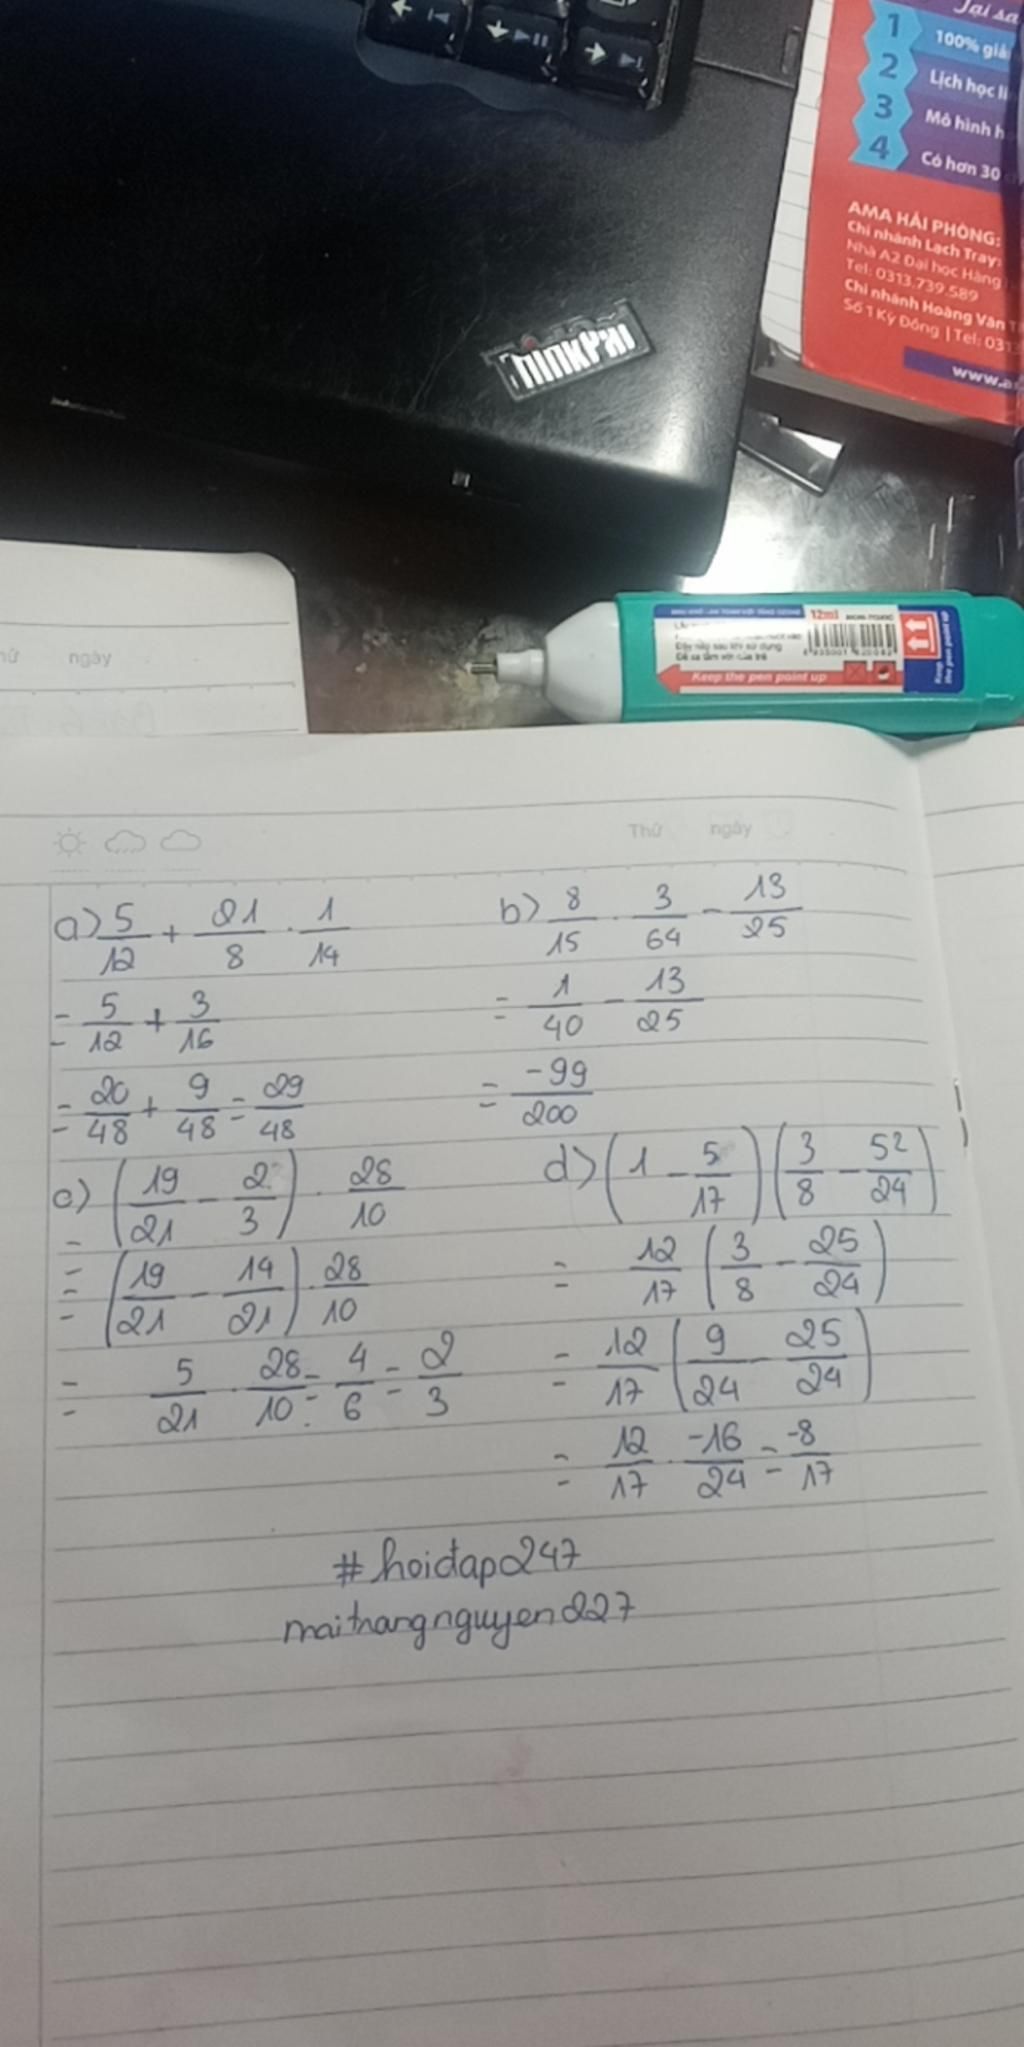 1
100% giả
2
Lịch học li
3
Mô hình h
4
Có hơn 30
AMA HẢI PHÒNG:
Chi nhánh Lạch Tray:
Nhà A2 Đại học Hàng
Tel: 0313.739.589
Chi nhánh Hoàng Văn T
Số 1 Kỳ Đồng | Tel: 0313
www.a
ThinkPad
12ml
Keep the pen point up
Keep
the pen point up
ngày
Thứ ngày
a) 5/12 + 21/8 . 1/14
= 5/12 + 3/16
= 20/48 + 9/48 = 29/48
b) 8/15 . 3/64 - 13/25
= 1/40 - 13/25
= -99/200
c) (19/21 - 2/3) . 28/10
=
= (19/21 - 14/21) . 28/10
= 5/21 . 28/10 = 4/6 = 2/3
d) (1 - 5/17) (3/8 - 5²/24)
= 12/17 (3/8 - 25/24)
= 12/17 (9/24 - 25/24)
= 12/17 . -16/24 = -8/17
#hoidap247
maitrangnguyen227